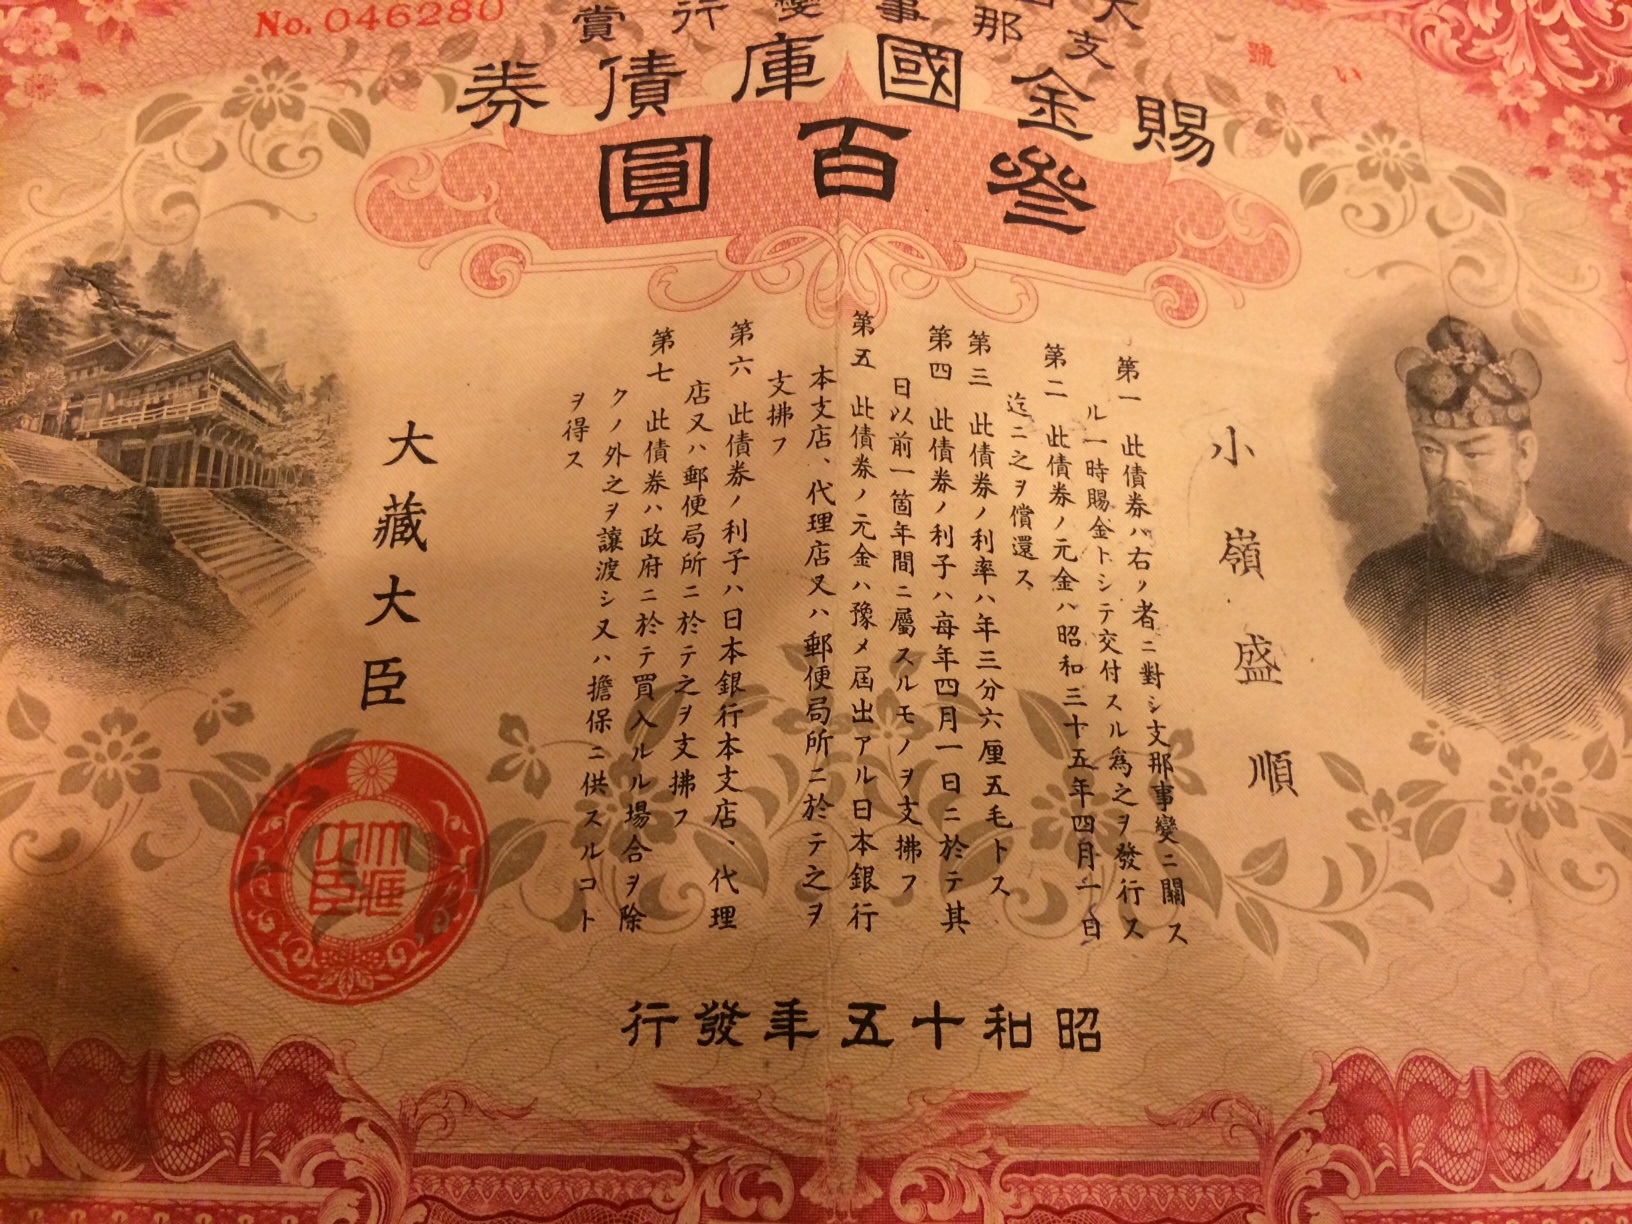 No. 046280
い 號
支那事變行賞
賜金國庫債券
參百圓
小嶺盛順
第一 此債券ハ右ノ者ニ對シ支那事變ニ關ス
ル一時賜金トシテ交付スル爲之ヲ發行ス
第二 此債券ノ元金ハ昭和三十五年四月一日
迄ニ之ヲ償還ス
第三 此債券ノ利率ハ年三分六厘五毛トス
第四 此債券ノ利子ハ每年四月一日ニ於テ其
日以前一箇年間ニ屬スルモノヲ支拂フ
第五 此債券ノ元金ハ豫メ屆出アル日本銀行
本支店、代理店又ハ郵便局所ニ於テ之ヲ
支拂フ
第六 此債券ノ利子ハ日本銀行本支店、代理
店又ハ郵便局所ニ於テ之ヲ支拂フ
第七 此債券ハ政府ニ於テ買入ルル場合ヲ除
クノ外之ヲ讓渡シ又ハ擔保ニ供スルコト
ヲ得ス
大藏大臣
大藏大臣
昭和十五年發行